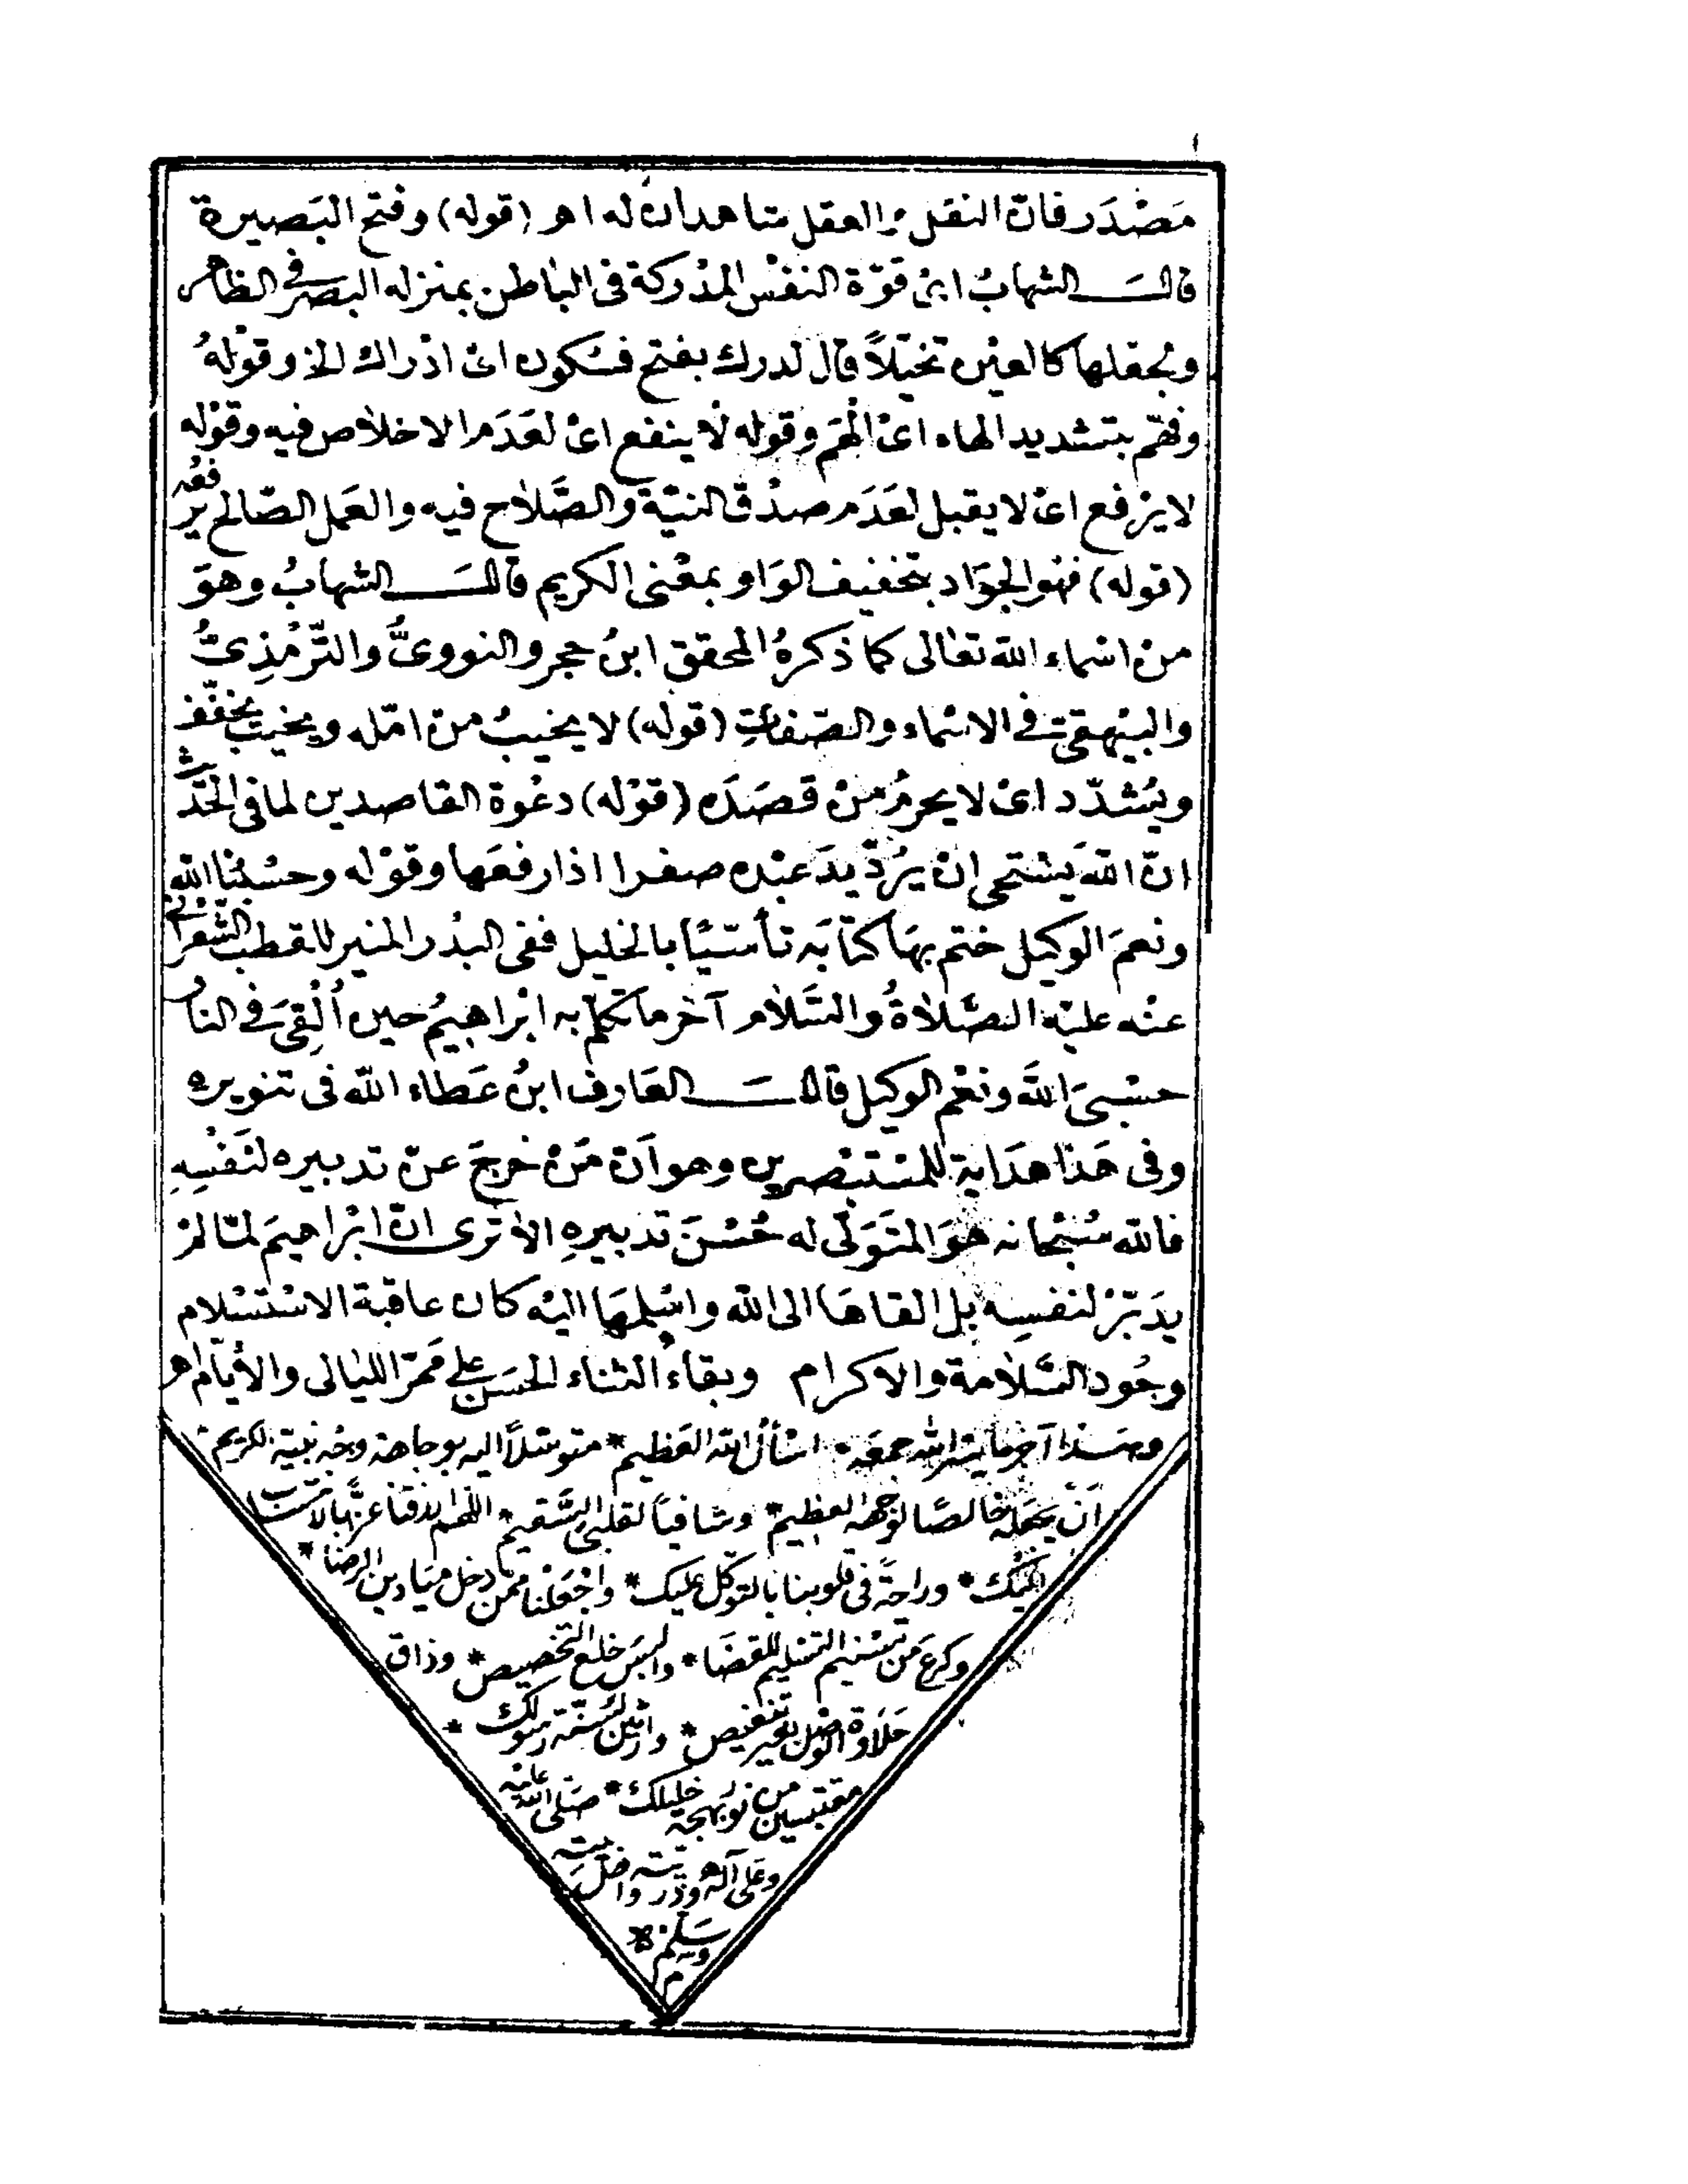 مَصْدَر فانّ النقل والعقل شاهدان له اهـ (قوله) وفتح البَصيرة
قالَ الشهابُ اىْ قوّة النفْس المدْركة فى البَاطن بمنزله البَصَر فى الظاهر
ويجعلها كالعيْن تخيّلاً قال لدرك بفتح فسَكون اىْ ادْراك الخ وقولهُ
وفهّم بتشديد الهاء اىْ الْهَم وقوله لَا ينفع اىْ لعَدَم الاخلَاص فيه وقوْله
لا يرْفع اىْ لا يقبل لعَدَم صدْق النيّة والصَّلاح فيه والعَمل الصّالح يرْفعُه
(قوله) فهُو الجوَاد بتخفيف الوَاو بمعْنى الكريم قالَ الشهابُ وهوَ
منْ اسْماء الله تعَالى كما ذكرهُ المحقق ابنُ حجر والنووىُّ والتّرْمُذِىُّ
والبيْهقىّ فى الاسْماء والصّفاتِ (قوله) لا يخيبُ منْ امّله ويخيبُ يخفّف
ويُشدّد اىْ لا يحرمُ منْ قصَدَه (قوْله) دعْوة القاصدين لما فى الحَديث
انّ اللهَ يسْتحى انْ يَرُدّ يدَ عبْده صفرا اذا رفعَها وقوْله وحسْبُنا الله
ونعمَ الوكيل ختم بهَا كتَابَه تأسّيًا بالخليل ففى البدْر المنير للقطب الشّعْرانى
عنْه عليْه الصّلَاةُ والسَّلَام آخر ما تكلّم به ابْراهيمُ حين اُلْقِىَ فى النار
حسْبىَ اللهَ ونعْم الوكيل قالَ العَارف ابنُ عَطاء الله فى تنويره
وفى هَذا هدَاية للمسْتبْصرين وهو اَنّ مَنْ خرجَ عنْ تدبيره لنَفْسِهِ
فالله سُبْحانه هوَ المتَوَلّى له حُسْنَ تدبيرهِ الا ترى انّ ابْراهيمَ لمّا لمْ
يدَبّرْ لنفسِه بل القاهَا الى الله واسْلمهَا اليْه كان عاقبة الاسْتسْلام
وجُود السَّلَامة والاكرام وبقاءُ الثناء الحسَن على مَمرّ الليَالى والأيّام اهـ
وهَذا آخر ما يسّر الله جمعَه * اسْألُ الله العَظيم * متوسّلاً اليه بوجاهة وجْه نبيّه الكريم *
اَنْ يَجعَله خالصًا لوجهه العظيم * وشافياً لقلبى السَّقيم * اللهم ارزقنا عزًّا بالانتساب
اليْك * وراحةً فى قلوبنا بالتوكّل عليك * واجْعَلْنا ممّن دخل ميَادين الرضا *
وكرعَ من تسْنيم التسْليم للقضَا * والبسَ خلع التخصيص * وذاق
حَلَاوة الوصْل بغير تنغيص * وارثين لسُنّة رسولك *
مقتبسين من نور بهجة خليلك * صَلى الله عليْه
وعَلى آله وذرّيّته واهل بيته
وسَلم *
م